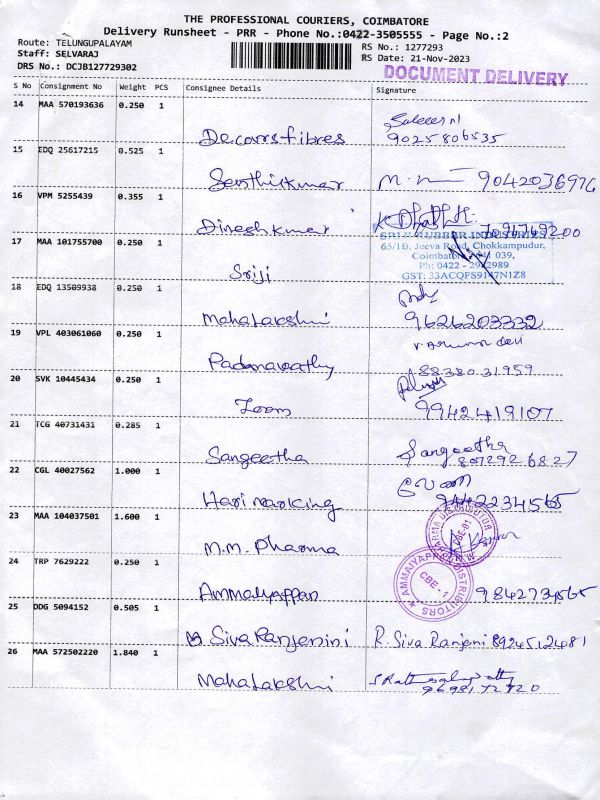 THE PROFESSIONAL COURIERS, COIMBATORE
Delivery Runsheet - PRR - Phone No.:0422-3505555 - Page No.:2
Route: TELUNGUPALAYAM
Staff: SELVARAJ
DRS No.: DCJB127729302
RS No.: 1277293
RS Date: 21-Nov-2023
DOCUMENT DELIVERY
S No Consignment No Weight Pcs Consignee Details Signature
14 MAA 570193636 0.250 1
Decorrs fibres 9025806535
15 EDQ 25617215 0.525 1
Senthilkumar 9042036976
16 VPM 5255439 0.355 1
Dineshkumar
17 MAA 101755700 0.250 1
65/1B, Jeeva Road, Chokkampudur,
Coimbatore 641 039,
Ph: 0422 - 2989
GST: 33ACQFS9147N1Z8
Sriji
18 EDQ 13509938 0.250 1
Mahalakshmi 9626203332
19 VPL 403061060 0.250 1
Padmavathy 8838031959
20 SVK 10445434 0.250 1
Zoom 9942419107
21 TCG 40731431 0.285 1
Sangeetha
Sangeetha 8072926827
22 CGL 40027562 1.000 1
Hari marking 9442234565
23 MAA 104037501 1.600 1
M.M. Pharma
24 TRP 7629222 0.250 1
AMMAIYAPPAN DISTRIBUTORS
CBE - 1
Ammaiyappan 9842734565
25 DDG 5094152 0.505 1
Siva Ranjenini R. Siva Ranjeni 8924512481
26 MAA 572502220 1.840 1
Mahalakshmi 9698172720